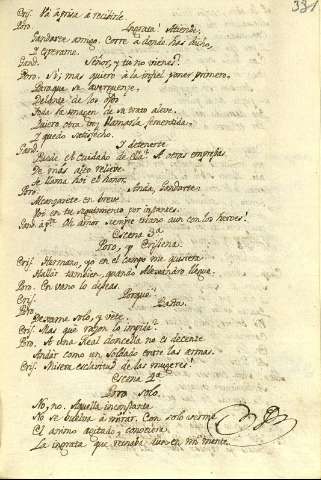 331
Cris. Vá aprisa á recibirle.
Poro. Ingrata! Atiende,
Gandarte amigo. Corre á donde has dicho,
Y esperame.
Gand. Señor, y tu no vienes?
Poro. Si; mas quiero á la infiel poner primero,
Paraque se averguenze,
Delante de los ojos
Toda la imagen de su trato aleve.
Quiero otra vez llamarla fementida.
Y quedo satisfecho.
Gand. Y detenerte
Puede el cuidado de ella? A otras empresas
De mas alto relieve
Te llama hoy el honor.
Poro. Anda, Gandarte:
Alcanzarete en breve.
Voy en tu seguimiento por instantes.
Gand. Oh amor siempre tirano aun con los heroes!
Escena 3ª
Poro, y Crisena
Cris. Hermano, yo en el campo me quisiera
Hallar tambien, quando Alexandro llegue.
Poro. En vano lo deseas.
Cris. Porqué?
Poro. Basta.
Dexame solo, y vete.
Cris. Mas què razon lo impide?
Poro. A una Real doncella no es decente
Andár como un soldado entre las armas.
Cris. Misera esclavitud de las mugeres!
Escena 4ª
Poro solo.
No, no. Aquella inconstante
No se buelva á mirár. Con solo verme
El animo agitado, conociera
La ingrata que reinaba aun en mi mente.